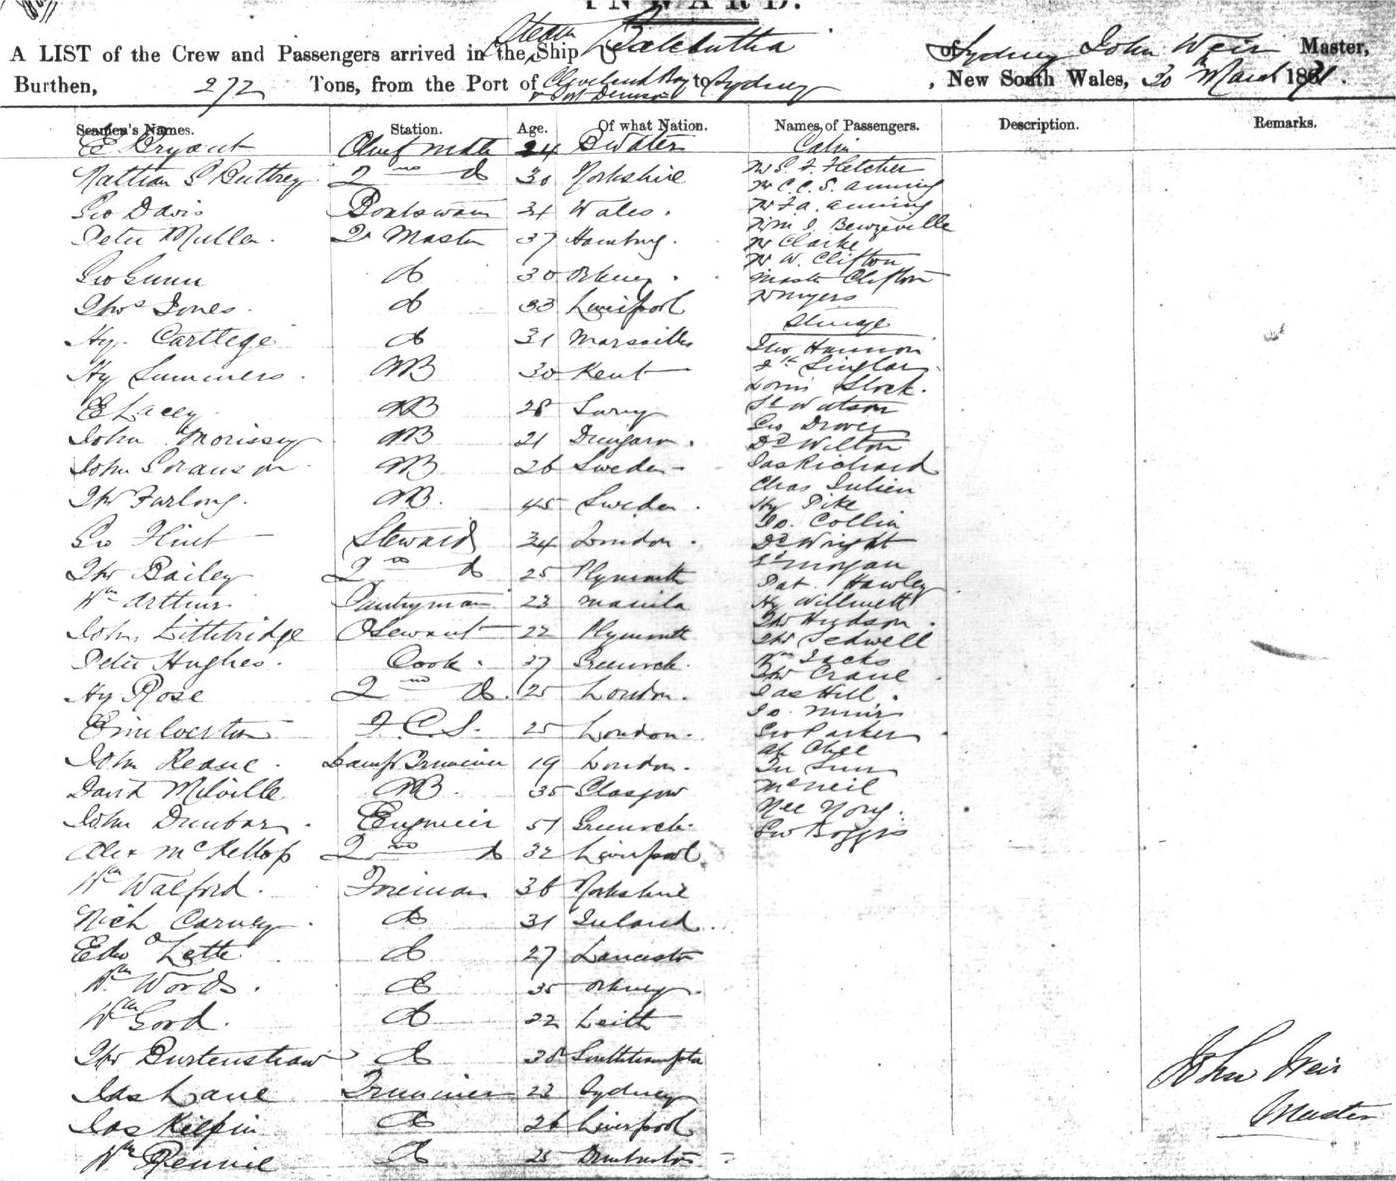 INWARD.
A LIST of the Crew and Passengers arrived in the Steam Ship of Sydney John Weir Master,
Burthen, 272 Tons, from the Port of Cleveland Bay to Sydney , New South Wales, 30th March 1871.
& Port Denison
Seamen's Names. Station. Age. Of what Nation. Names of Passengers. Description. Remarks.
E Bryant Chief Mate 24 Cabin
Nathan S Buttrey 2nd do 30 Yorkshire
Geo Davis Boatswain 31 Wales.
Peter Muller. Qr Master 37 Hamburg.
Geo Gunn do 30 Orkney.
Thos Jones. do 33 Liverpool
Hy. Cartlege do 31 Marsailles
Hy Summers. AB 30 Kent
E Lacey AB 28 Surry
John Morissey AB 21 Dungarn.
John AB 26 Sweden
Thos Furlong. AB. 45 Sweden.
Geo Flint Steward 34 London.
Thos Bailey 2nd do 25 Plymouth
Wm Arthur. Pantryman 23 Manila
John Lithbridge Steward 22 Plymouth
Peter Hughes. Cook. 27 Greenock.
Hy Rose 2nd do. 25 London.
25 London.
John Keane. Lamp Trimmer 19 London.
David Milville AB. 35 Glasgow
John Dunbar. Engineer 51 Greenock.
Alex McKellop 2nd do 32 Liverpool
Wm Walford. Fireman 36 Yorkshire
Nich Carney do 31 Ireland.
Edwd Lette do 27 Lancaster
Wm Words. do 35 Orkney.
Wm Gord. do 22 Leith
Thos Burtenshaw do 38 Southampton
Jas Lane Trimmer 23 Sydney
Jas Kilpin do 26 Liverpool
Wm Rennie do 25 Dumbarton
Mr S. F. Fletcher
Mr C. C. S. Anning
Mr F. A. Anning
Wm J. Bewzeville
Mr Clarke
Mr W. Clifton
Master Clifton
Mr Myers
Steerage
Thos Hannon
Stock.
Watson
Geo Drover
Dd Wilton
Jas Richard
Chas Julien
Hy Pike
Jo. Collin
Dd Wright
Morgan
Pat. Hawley
Hy Willmett
Thos Hudson.
Thos Sedwell
Wm Jacks
Thos Crane
Jas Hill.
Jo. Muir
Geo Parker
Ah Chee
McNeil
Geo Boggis
John Weir
Master